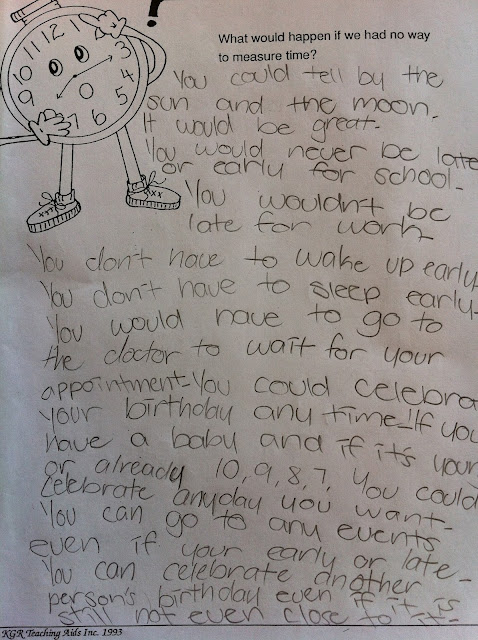 What would happen if we had no way
to measure time?
11 12 1
10 3
9 4
8 5
7 6
You could tell by the
sun and the moon.
It would be great.
You would never be late
or early for school.
You wouldn't be
late for work
You don't have to wake up early
You don't have to sleep early.
You would have to go to
the doctor to wait for your
appointment. You could celebra
your birthday any time. If you
have a baby and if it's your
or already 10, 9, 8, 7, you could
celebrate anyday you want.
You can go to any events
even if your early or late.
You can celebrate another
person's birthday even if it is
still not even close to it.
KGR Teaching Aids Inc. 1993